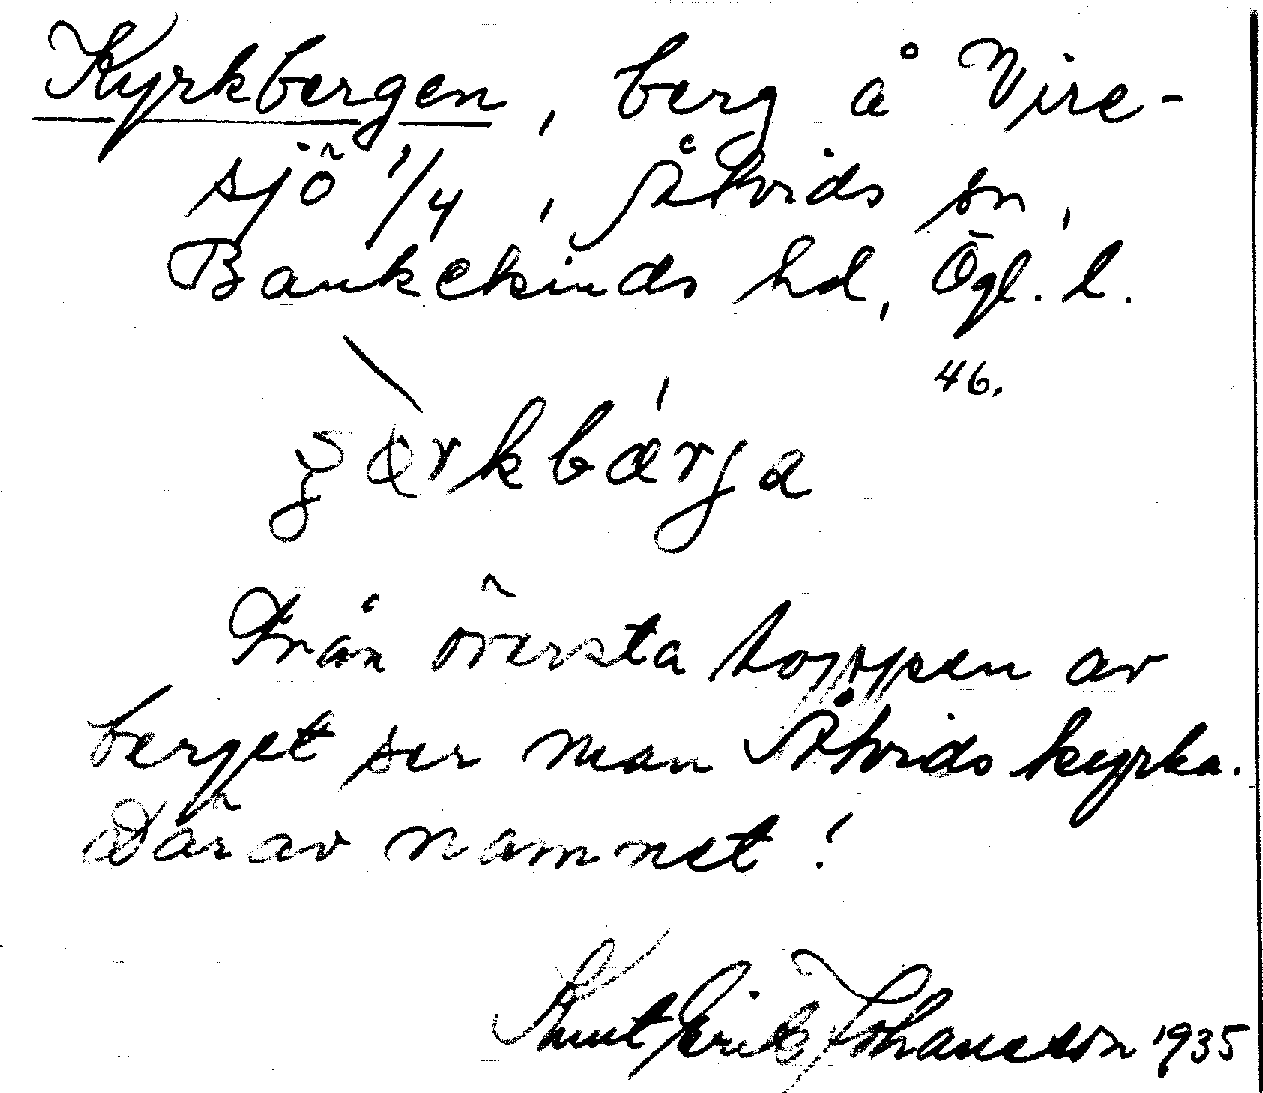 Kyrkbergen, berg å Vire-
sjö 1/4, Åtvids sn,
Bankekinds hd, Ögl. l.
46.
ʒærkbærja
Från översta toppen av
berget ser man Åtvids kyrka.
Därav namnet!
Knut Erik Johansson 1935